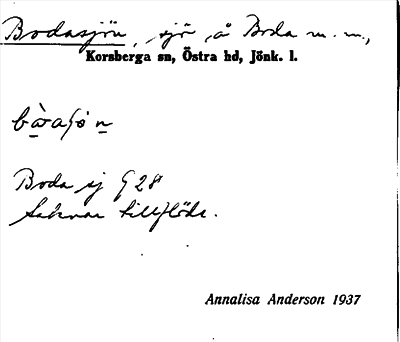 Bodasjön, sjö å Boda m. m.,
Korsberga sn, Östra hd, Jönk. l.
Boda sj G 28
Saknar tillflöde.
Annalisa Anderson 1937